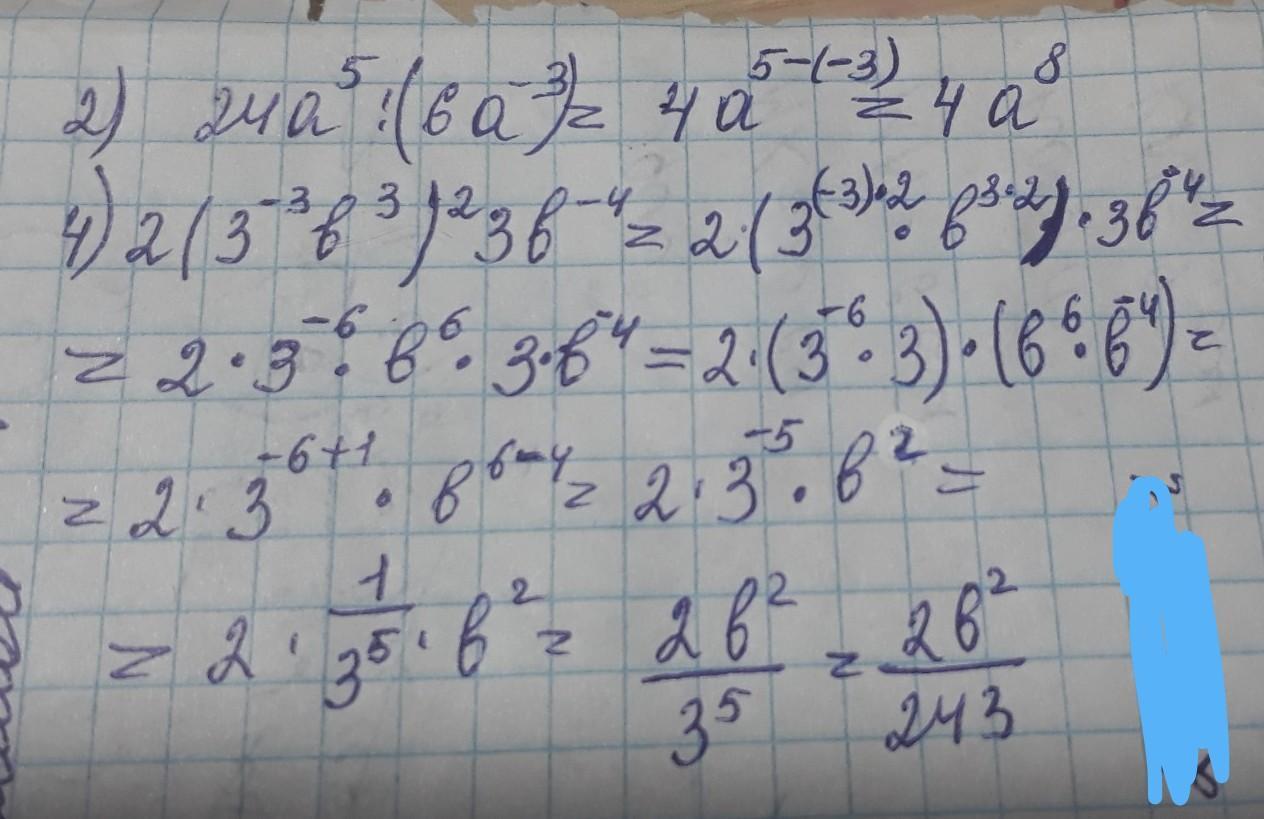 2) 24a⁵:(6a⁻³)= 4a⁵⁻⁽⁻³⁾ = 4a⁸
4) 2(3⁻³в³)²3в⁻⁴ = 2·(3⁽⁻³⁾·² · в³·²)·3в⁻⁴ =
= 2·3⁻⁶·в⁶·3·в⁻⁴ = 2·(3⁻⁶·3)·(в⁶·в⁻⁴) =
= 2·3⁻⁶⁺¹ · в⁶⁻⁴ = 2·3⁻⁵·в² =
= 2 · 1/3⁵ · в² = 2в²/3⁵ = 2в²/243